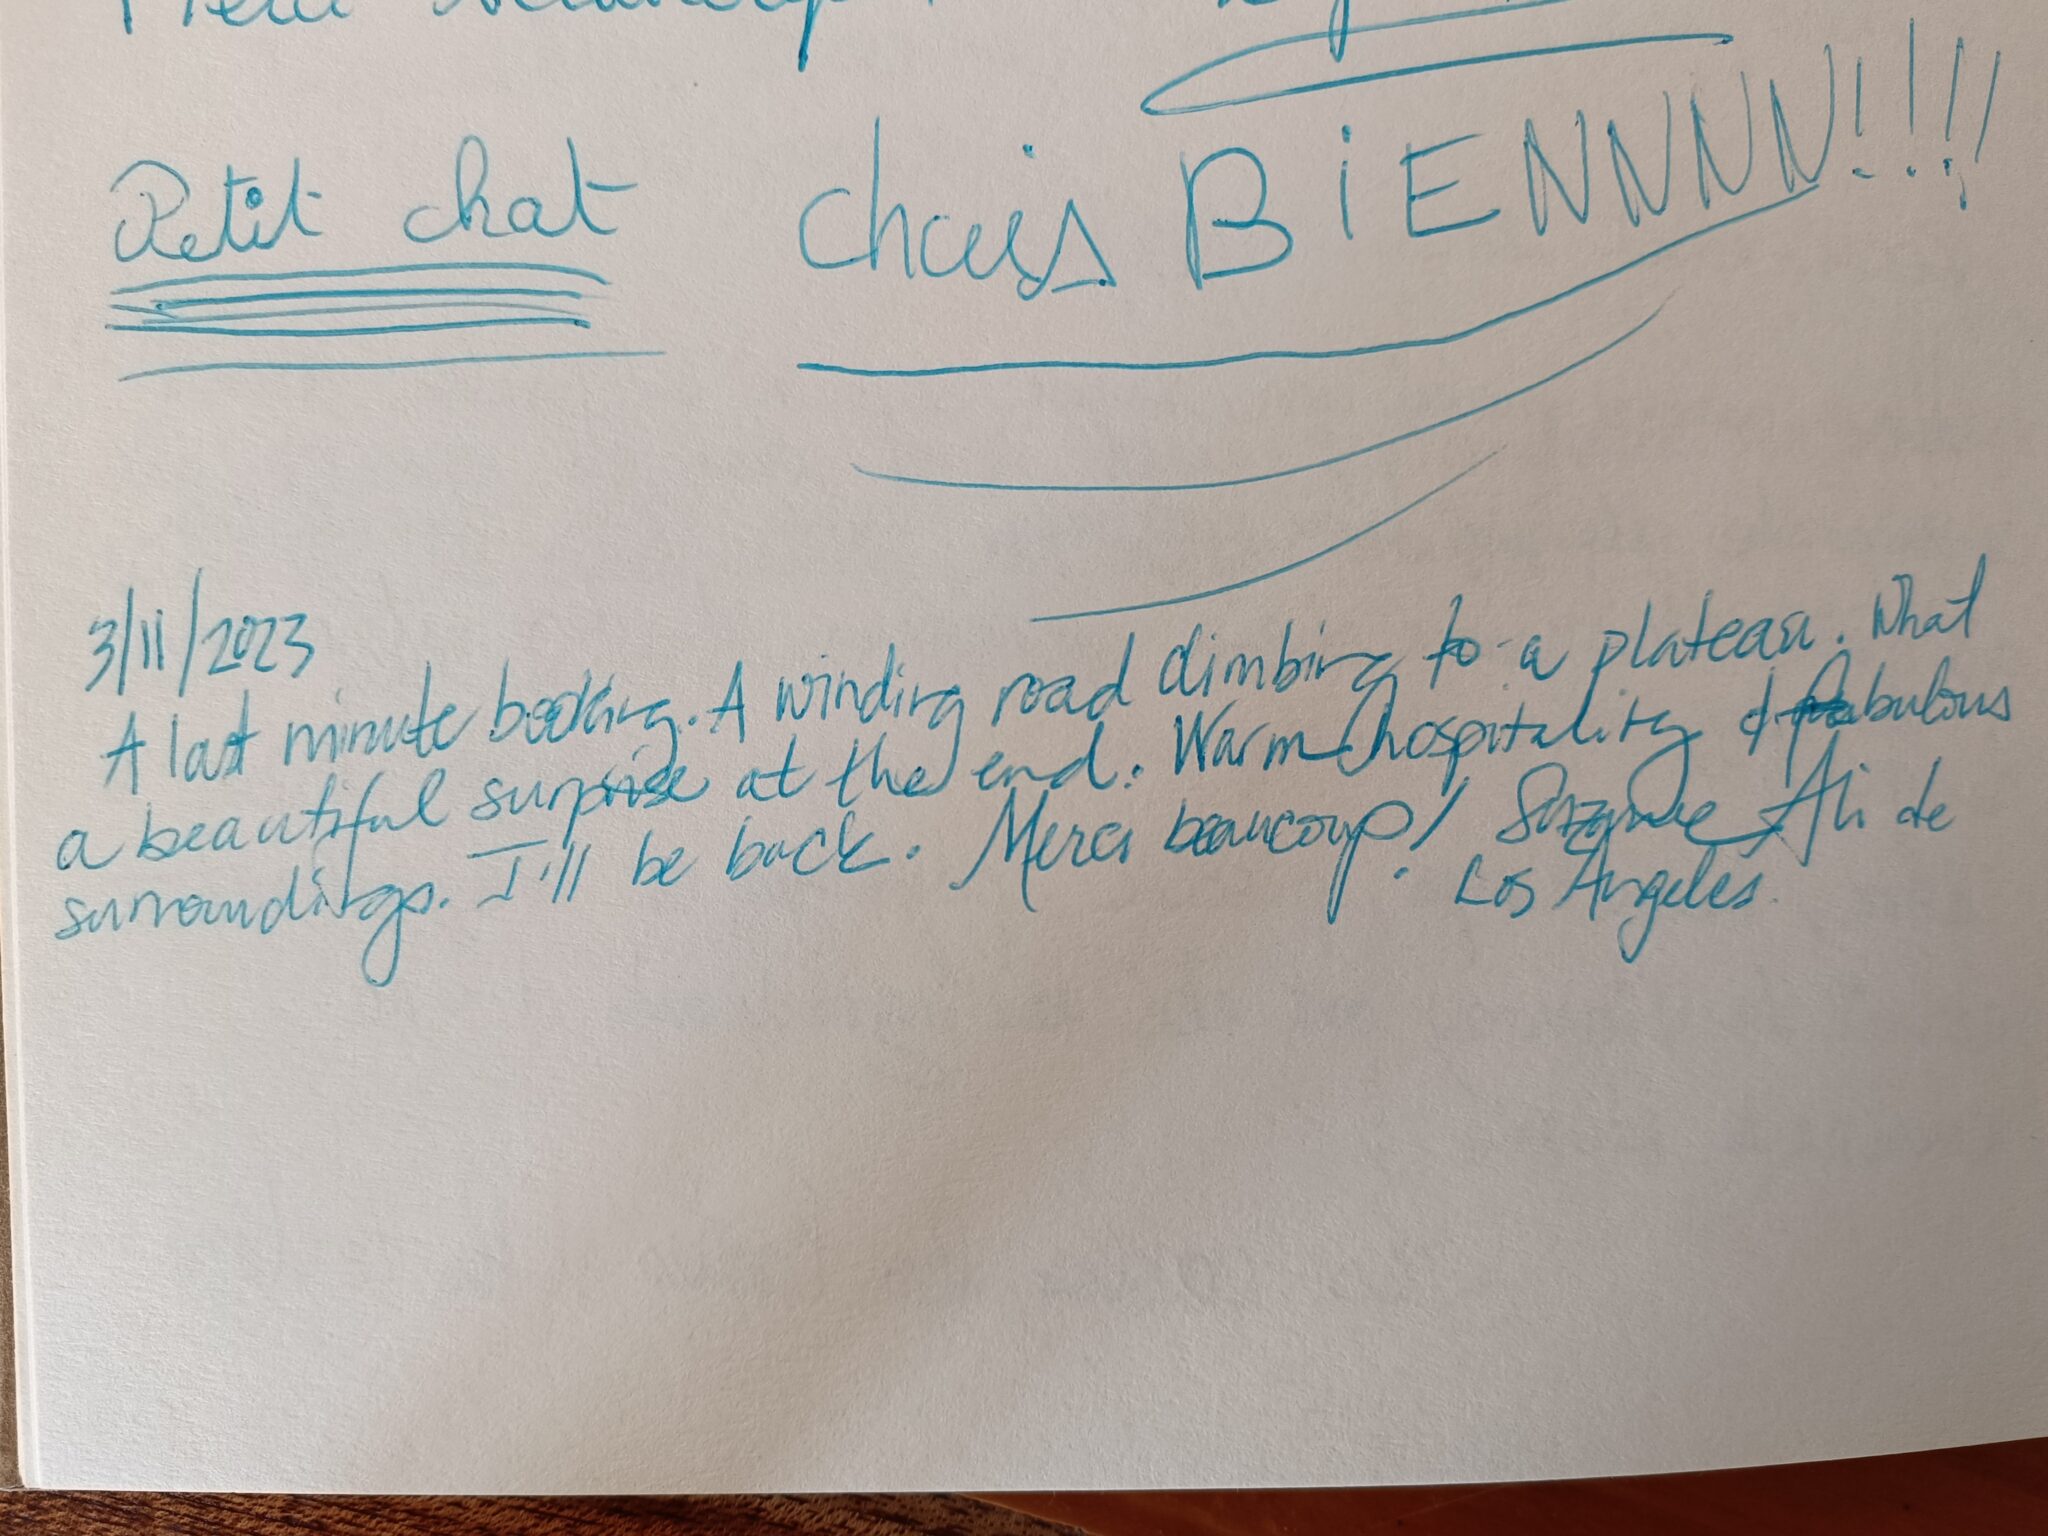 Merci beaucoup
Petit chat chuis BiENNNN!!!!
3/11/2023
A last minute booking. A winding road climbing to a plateau. What
a beautiful surprise at the end. Warm hospitality & fabulous
surroundings. I'll be back. Merci beaucoup! Suzanne Ali de
Los Angeles.